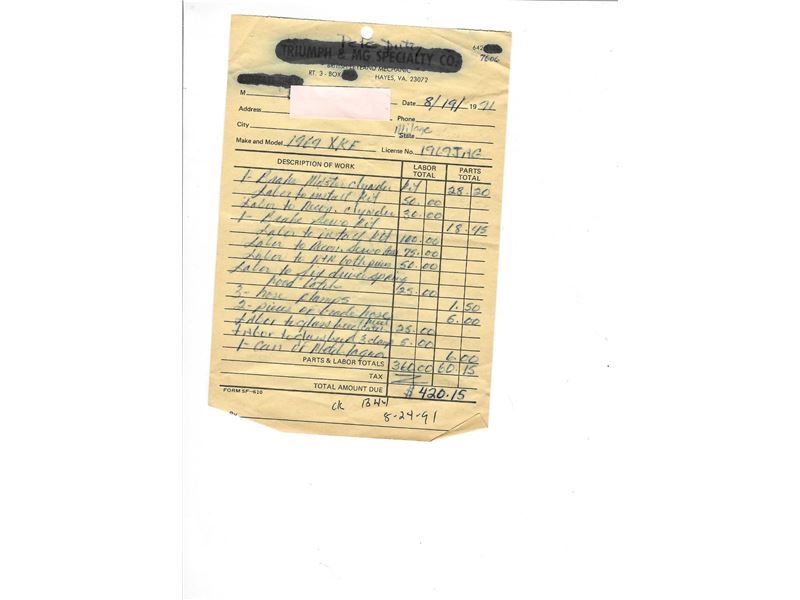 642
TRIUMPH & MG SPECIALTY CO. 7606
MECHANIC
RT. 3 - BOX HAYES, VA. 23072
M
Date 8/19/ 19 91
Address Phone
City Milage State
Make and Model 1969 XKE License No. 1969JAG
DESCRIPTION OF WORK LABOR TOTAL PARTS TOTAL
1- Brake Master clynder Kit 28.20
Labor to install Kit 50.00
Labor to Recon. clynder 30.00
1- Brake Servo Kit 18.45
Labor to install Kit 100.00
Labor to Recon. Servo 75.00
Labor to R+R both 50.00
Labor to fix driver spring
Hood Latch 25.00
3- hose clamps 1.50
2- pieces of brade hose 6.00
Labor to glass bead 25.00
Labor to glass bead 3 clamp 5.00
1- Can of 6.00
PARTS & LABOR TOTALS 360.00 60.15
TAX
TOTAL AMOUNT DUE $420.15
FORM SF-610
CK
8-24-91
By